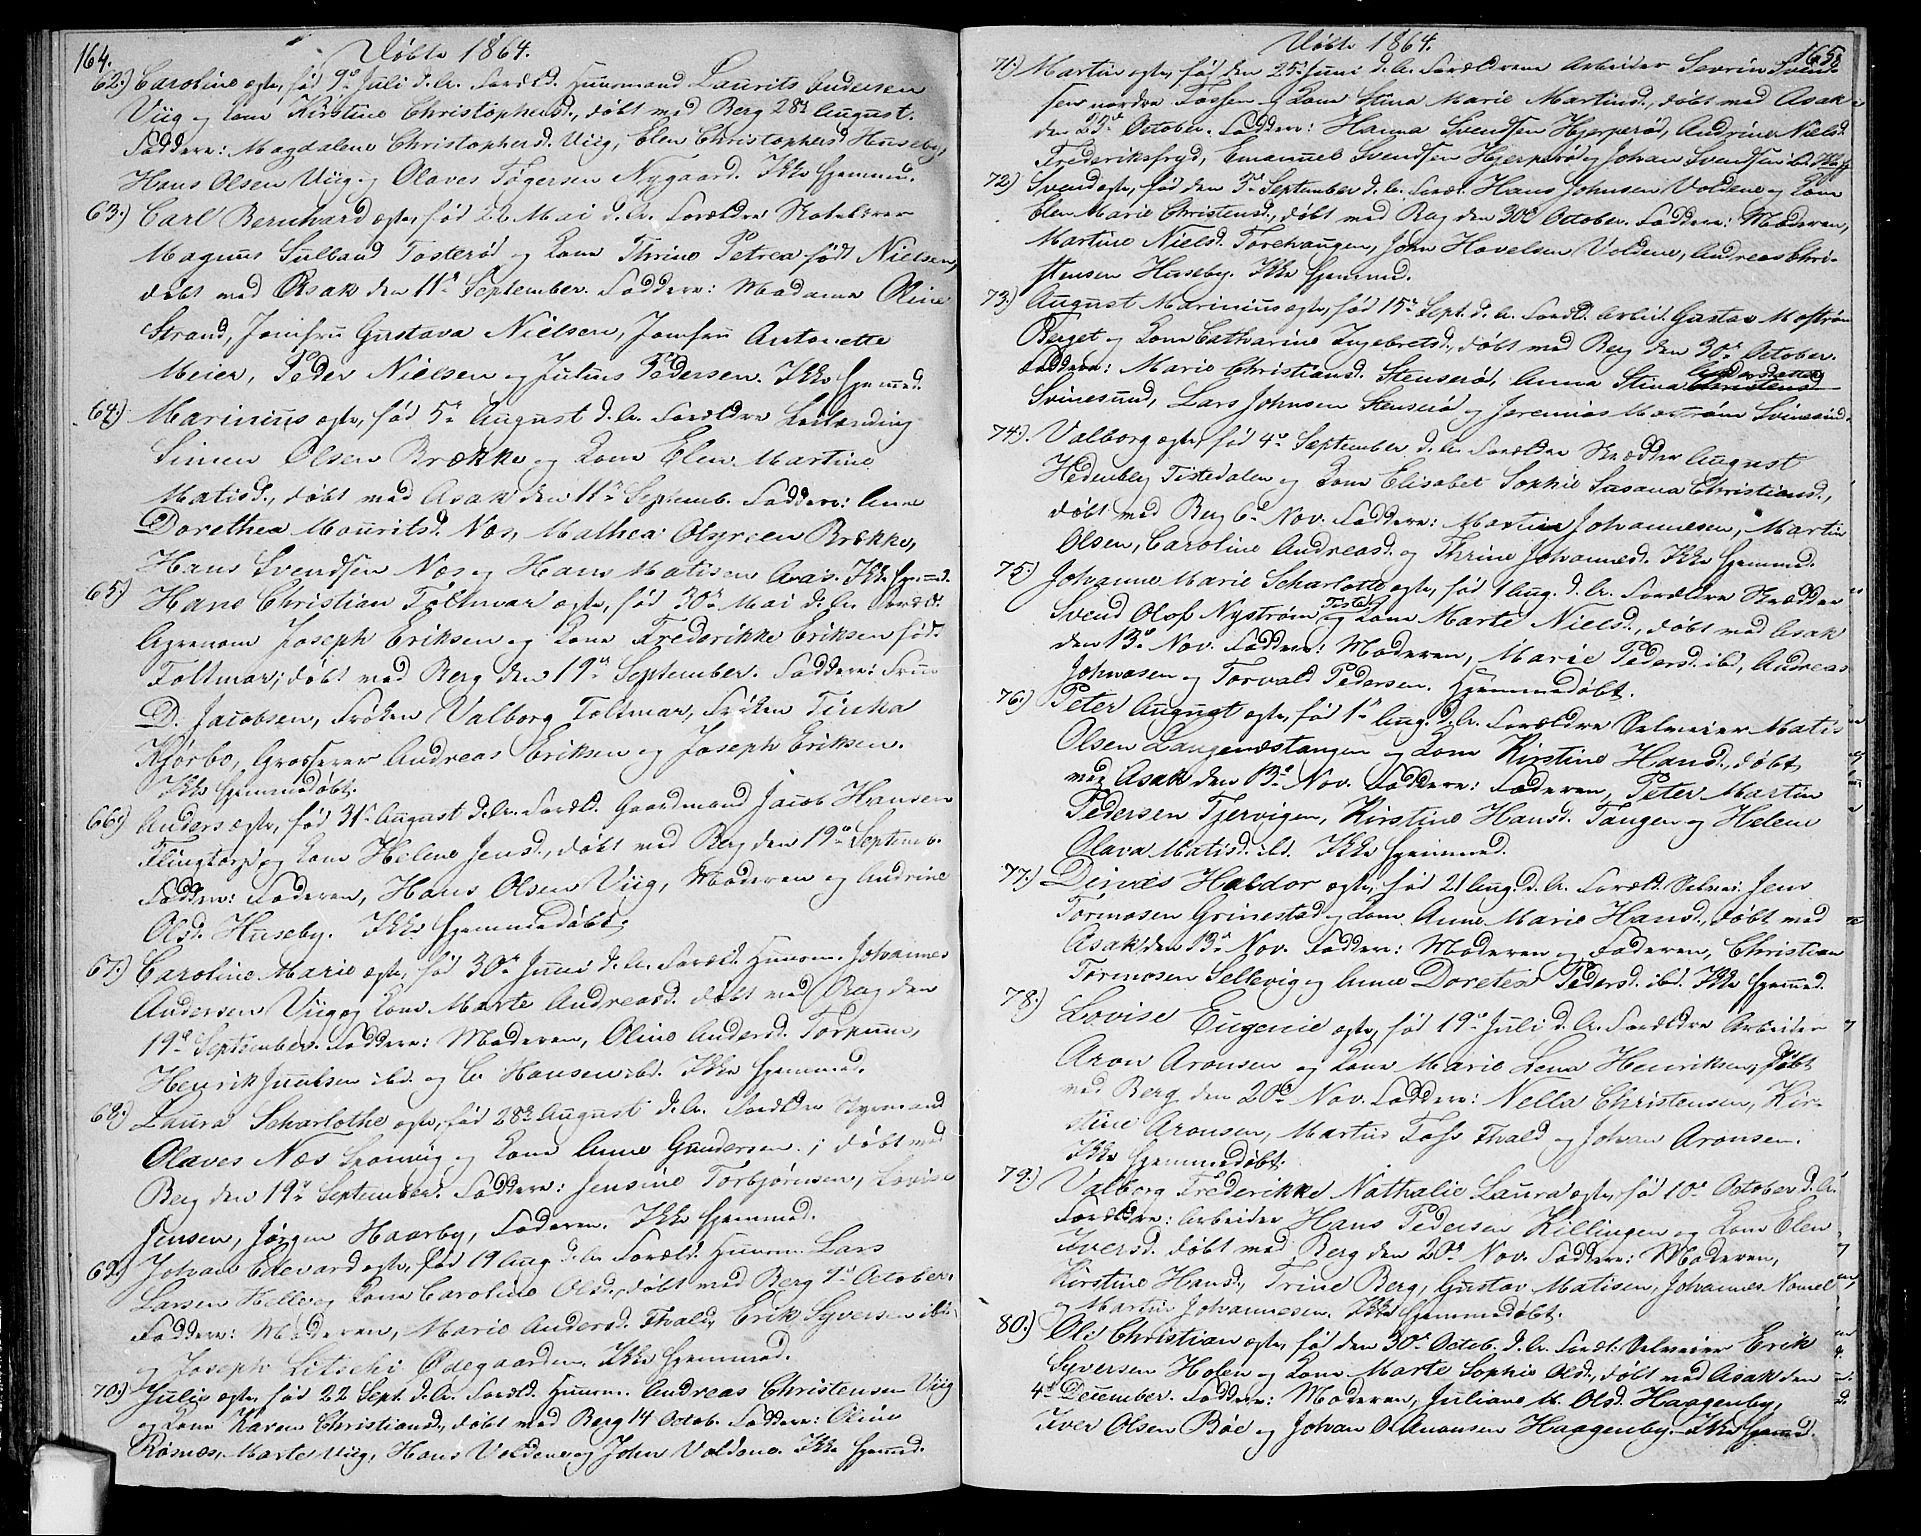 164.
Döbte 1864.
62.) Caroline egte, föd 9de Juli d. A. Foræld. Huusmand Laurits Andersen
Viig og Kone Kirstine Christophersd., döbt ved Berg 28de August.
Faddere: Magdalene Christophersd. Viig, Elen Christophersd Huseby,
Hans Olsen Viig og Olaves Tögersen Nygaard. Ikke hjemmed.
63.) Carl Bernhard egte, föd 22 Mai d. A. Forældre: Skolelærer
Magnus Sulland Tosterød og Kone Thrine Petrea født Nielsen,
döbt ved Asak den 11te September. Faddere: Madame Oline
Strand, Jomfru Gustava Nielsen, Jomfru Antonette
Meier, Peder Nielsen og Julius Pedersen. Ikke hjemmed.
64.) Marinius egte, föd 5te August d. A. Forældre
Simen Olsen Brække og Kone Elen Martine
Matisd., döbt ved Asak den 11te Septemb. Faddere: Anne
Dorethea Mouritsd. Næs, Mathea Olsdr Brække,
Hans Svendsen Næs og Hans Matisen Aas. Ikke hjemmed.
65.) Hans Christian Toltmar egte, föd 30te Mai d. A. Foræld.
Agronom Joseph Eriksen og Kone Frederikke Eriksen föd
Toltmar, döbt ved Berg den 19de September. Faddere: Frue
D. Jacobsen, Fröken Valborg Toltmar, Fröken Tinka
Kjörbo, Grosserer Andreas Eriksen og Joseph Eriksen.
Ikke hjemmedöbt.
66.) Anders egte, föd 31te August d. A. Foræld. Gaardmand Jacob Hansen
Flingtorp og Kone Helene Jensd., döbt ved Berg den 19de Septemb.
Faddere: Faderen, Hans Olsen Viig, Moderen og Andrine
Olsd. Huseby. Ikke hjemmedöbt.
67.) Caroline Marie egte, föd 30te Juni d. A. Foræld. Huusm. Johannes
Andersen Viig og Kone Marte Andreasd. döbt ved Berg den
19de September. Faddere: Moderen, Oline Andersd. Torpum,
Henrik Juulsen ibd. og C. Hansen ibd. Ikke hjemmed.
68.) Laura Scharlothe egte, föd 28de August d. A. Forældre Styrmand
Olaves Næs Sponvig og Kone Anne Gundersen; döbt ved
Berg den 19de September. Faddere: Jensine Torbjörnsen, Lovise
Jensen, Jörgen Haarby, Faderen. Ikke hjemmed.
69.) Johan Edevard egte, föd 19 Aug d. A. Foræld. Huusm. Lars
Larsen Helle og Kone Caroline Olsd., döbt ved Berg 9de October.
Faddere: Moderen, Marie Andersd. Thald, Erik Syversen ibd.
og Joseph Litschi Ödegaarden. Ikke hjemmed.
70.) Julie egte, föd 22 Sept. d. A. Foræld. Huusm. Andreas Christensen Viig
og Kone Karen Christiansd., döbt ved Berg 14 Octob. Faddere: Oline
Rösnæs, Marte Viig, Hans Voldene og John Voldene. Ikke hjemmed.
165.
Döbte 1864.
71.) Martin egte, föd den 25de Juni d. A. Forældrene Arbeider Severin Svend-
sen nordre Fossen og Kone Stina Marie Martinsd., döbt ved Asak
den 23de October. Faddere: Hanna Svendsen Hjerperöd, Andrine Nielsd.
Frederiksfryd, Emanuel Svendsen Hjerperö og Johan Svendsen ibd. Ikke hj.
72.) Svend egte, föd den 3de September d. A. Foræld. Hans Johnsen Voldene og Kone
Elen Marie Christensd., döbt ved Berg den 30te October. Faddere: Moderen,
Martine Nielsd. Torehaugen, John Havelsen Voldene, Andreas Chri-
stensen Huseby. Ikke hjemmed.
73.) August Marinius egte, föd 15de Sept. d. A. Foræld. Arbeid. Gustav Mostrøm
Berget og Kone Catharine Ingebretsd., döbt ved Berg den 30te October.
Faddere: Marie Christiansd. Stenseröd, Anna Stina Andersdatter
Svinesund, Lars Johnsen Stenserö og Jeremias Mostrøm Svinesund.
74.) Valborg egte, föd 4de September d. A. Forældre Skrædder August
Hedenby Tistedalen og Kone Elisabet Sophie Susana Christiansd.,
döbt ved Berg 6te Nov. Faddere: Martin Johannesen, Martin
Olsen, Caroline Andreasd. og Thrine Johannesd. Ikke hjemmed.
75.) Johanne Marie Scharlotte egte, föd 1 Aug. d. A. Forældre Skrædder
Svend Olof Nyström Tisted. og Kone Marte Nielsd., döbt ved Asak
den 13de Nov. Faddere: Moderen, Marie Pedersd. ibd, Andreas
Johnosen og Torvald Pedersen. Hjemmedöbt.
76.) Peter August egte, föd 1te Aug. d. A. Forældre Selveier Matis
Olsen Langenæstangen og Kone Kirstine Hansd., döbt
ved Asak den 13de Nov. Faddere: Faderen, Peter Martin
Pedersen Tjervigen, Kirstine Hansd. Tangen og Helene
Olava Matisd. ibd. Ikke hjemmed.
77.) Dinæs Haldor egte, föd 21 Aug. d. A. Foræld. Selvei. Jens
Tormosen Grinestad og Kone Anne Marie Hansd., döbt ved
Asak den 13de Nov. Faddere: Moderen og Faderen, Christian
Tormosen Sellevig og Anne Doretea Pedersd. ibd. Ikke hjemmed.
78.) Lovise Eugenie egte, föd 19de Juli d. A. Forældre Arbeider
Aron Aronsen og Kone Marie Lena Henriksen, döbt
ved Berg den 20de Nov. Faddere: Nella Christensen, Kir-
stine Aronsen, Martin Foss Thald og Johan Aronsen.
Ikke hjemmedöbt.
79.) Valborg Frederikke Nathalie Laura egte, föd 10de October d. A.
Forældre: Arbeider Hans Pedersen Killingen og Kone Elen
Iversd. döbt ved Berg den 20de Nov. Faddere: Moderen,
Kirstine Hansd., Trine Berg, Gustav Matisen, Johannes Nomel
og Martin Johannesen. Ikke hjemmedöbt.
80.) Ole Christian egte, föd den 30te Octob. d. A. Foræld: Selveier Erik
Syversen Holen og Kone Marte Sophie Olsd., döbt ved Asak den
4de December. Faddere: Moderen, Juliane M. Olsd. Haagenby,
Iver Olsen Böe og Johan O. Amonsen Haagenby. Ikke hjemmd.